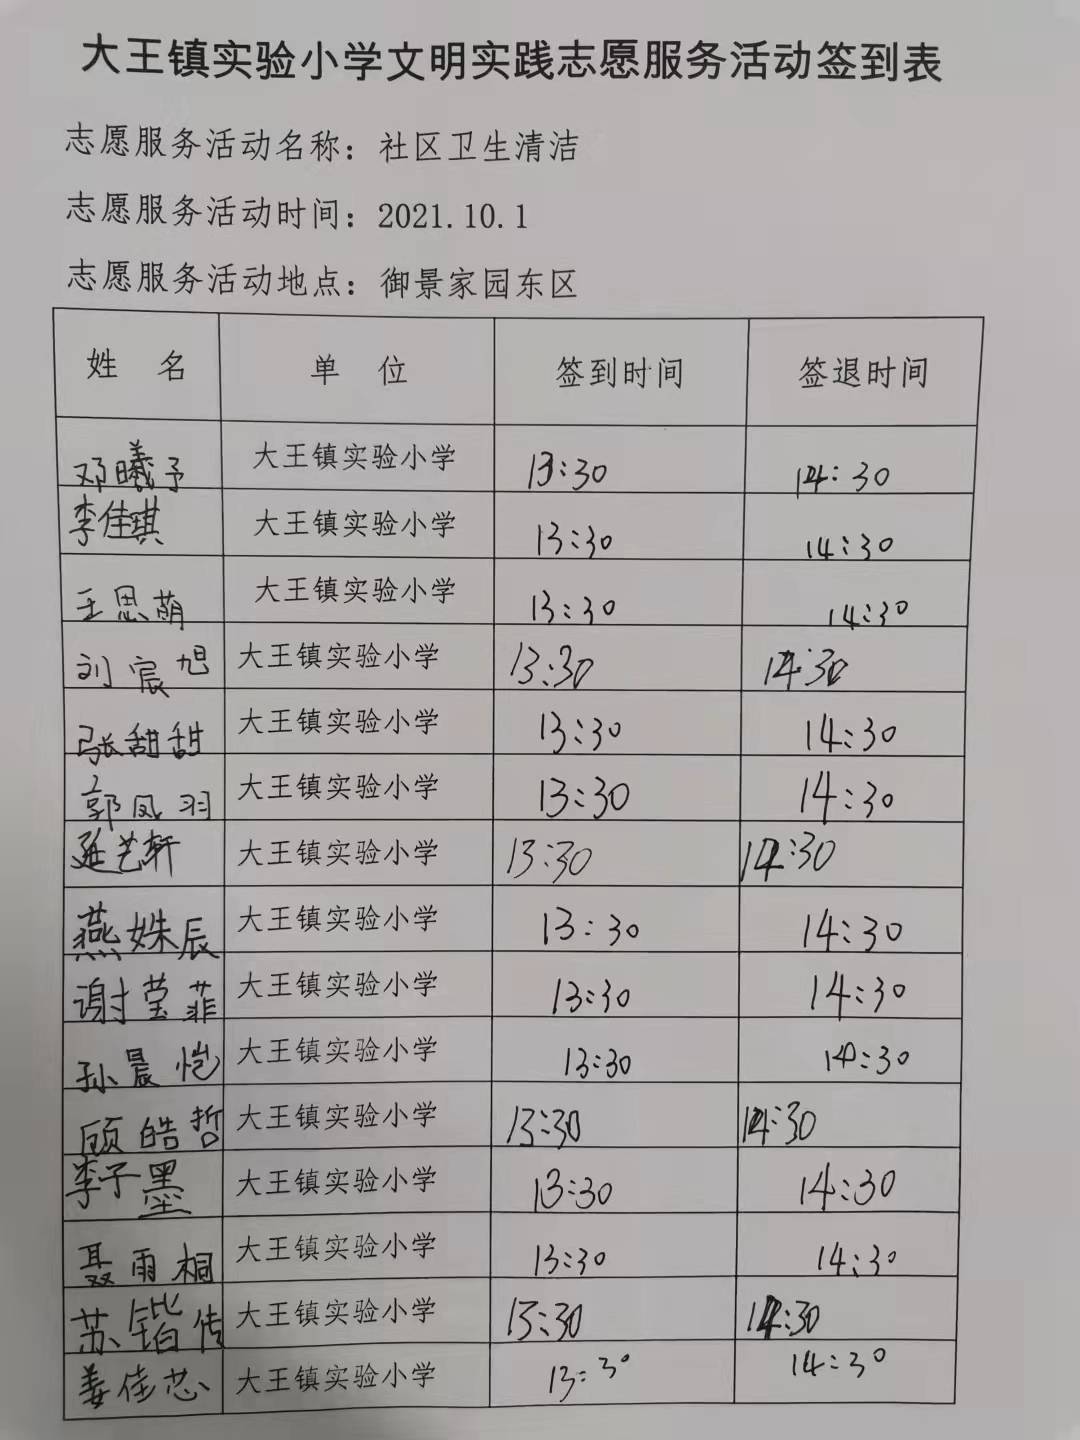 大王镇实验小学文明实践志愿服务活动签到表
志愿服务活动名称：社区卫生清洁
志愿服务活动时间：2021.10.1
志愿服务活动地点：御景家园东区
姓 名 单 位 签到时间 签退时间
邓曦予 大王镇实验小学 13:30 14:30
李佳琪 大王镇实验小学 13:30 14:30
王思萌 大王镇实验小学 13:30 14:30
刘宸旭 大王镇实验小学 13:30 14:30
张甜甜 大王镇实验小学 13:30 14:30
郭凤羽 大王镇实验小学 13:30 14:30
延艺轩 大王镇实验小学 13:30 14:30
燕姝辰 大王镇实验小学 13:30 14:30
谢莹菲 大王镇实验小学 13:30 14:30
孙晨恺 大王镇实验小学 13:30 14:30
顾皓哲 大王镇实验小学 13:30 14:30
李子墨 大王镇实验小学 13:30 14:30
聂雨桐 大王镇实验小学 13:30 14:30
苏锴传 大王镇实验小学 13:30 14:30
姜佳芯 大王镇实验小学 13:30 14:30